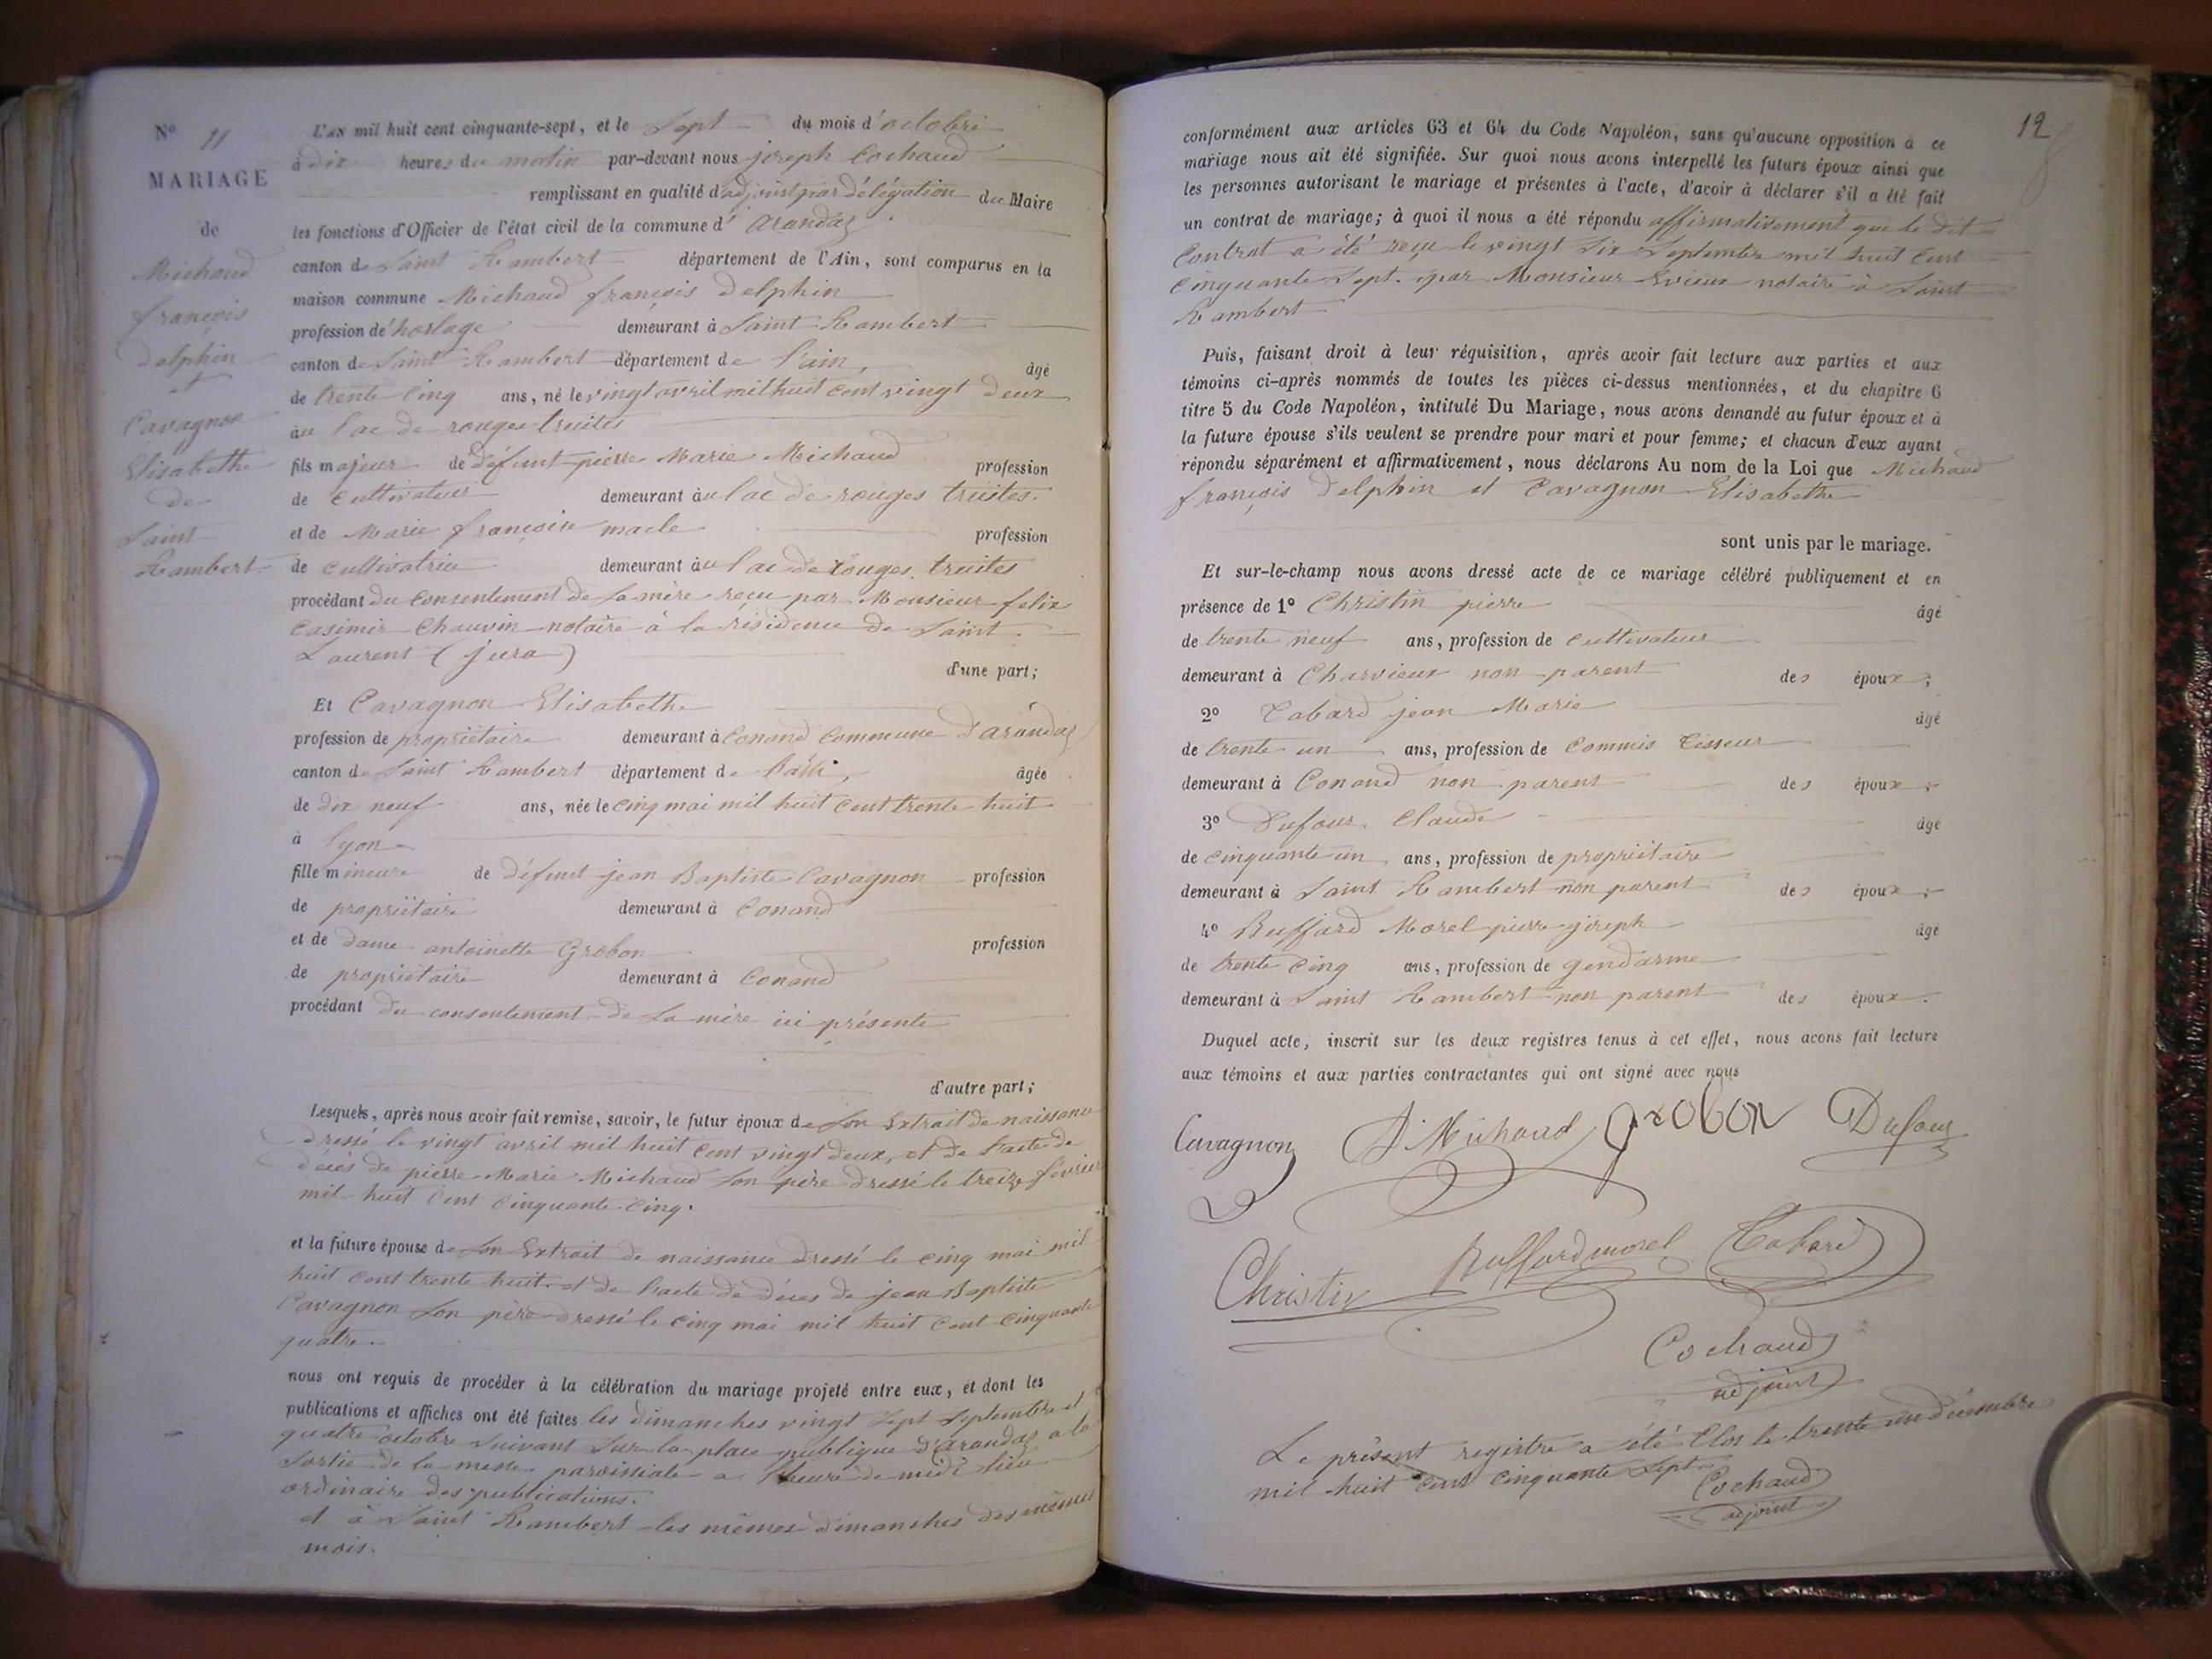 No 11
MARIAGE
de
Michaud
françois
delphin
et
Cavagnon
Elisabethe
de
Saint
Rambert
L'AN mil huit cent cinquante-sept, et le Sept du mois d'octobre
à dix heures du matin par-devant nous joseph Cochaud
remplissant en qualité d'adjoint par délégation du Maire
les fonctions d'Officier de l'état civil de la commune d' arandas
canton de Saint Rambert département de l'Ain, sont comparus en la
maison commune Michaud françois delphin
profession de horloge demeurant à Saint Rambert
canton de Saint Rambert département de l'ain, âgé
de trente cinq ans, né le vingt avril mil huit cent vingt deux
au lac de rouges truites
fils majeur de défunt pierre Marie Michaud profession
de Cultivateur demeurant au lac de rouges truites.
et de Marie françoise macle profession
de Cultivatrice demeurant au lac de rouges truites
procédant du consentement de sa mère reçu par Monsieur felix
Casimir Chauvin notaire à la résidence de Saint
Laurent (jura)
d'une part;
Et Cavagnon Elisabethe
profession de propriétaire demeurant à Conand Commune d'arandas
canton de Saint Rambert département de l'ain, âgée
de dix neuf ans, née le cinq mai mil huit cent trente huit
à lyon
fille mineure de défunt jean Baptiste Cavagnon profession
de propriétaire demeurant à Conand
et de dame antoinette Grobon profession
de propriétaire demeurant à Conand
procédant du consentement de sa mère ici présente
d'autre part;
Lesquels, après nous avoir fait remise, savoir, le futur époux de son Extrait de naissance
dressé le vingt avril mil huit cent vingt deux, et de l'acte de
décès de pierre Marie Michaud son père dressé le treize février
mil huit cent cinquante cinq.
et la future épouse de son Extrait de naissance dressé le cinq mai mil
huit cent trente huit et de l'acte de décès de jean Baptiste
Cavagnon son père dressé le cinq mai mil huit cent cinquante
quatre.
nous ont requis de procéder à la célébration du mariage projeté entre eux, et dont les
publications et affiches ont été faites les dimanches vingt sept septembre et
quatre octobre suivant sur la place publique d'arandas a la
sortie de la messe paroissiale a l'heure de midi lieu
ordinaire des publications.
et à Saint Rambert les mêmes dimanches des mêmes
mois.
12
conformément aux articles 63 et 64 du Code Napoléon, sans qu'aucune opposition à ce
mariage nous ait été signifiée. Sur quoi nous avons interpellé les futurs époux ainsi que
les personnes autorisant le mariage et présentes à l'acte, d'avoir à déclarer s'il a été fait
un contrat de mariage; à quoi il nous a été répondu affirmativement que le dit
Contrat a été reçu le vingt Six Septembre mil huit Cent
Cinquante Sept. par Monsieur Evieux notaire à Saint
Rambert
Puis, faisant droit à leur réquisition, après avoir fait lecture aux parties et aux
témoins ci-après nommés de toutes les pièces ci-dessus mentionnées, et du chapitre 6
titre 5 du Code Napoléon, intitulé Du Mariage, nous avons demandé au futur époux et à
la future épouse s'ils veulent se prendre pour mari et pour femme; et chacun d'eux ayant
répondu séparément et affirmativement, nous déclarons Au nom de la Loi que Michaud
françois delphin et Cavagnon Elisabethe
sont unis par le mariage.
Et sur-le-champ nous avons dressé acte de ce mariage célébré publiquement et en
présence de 1° Christin pierre âgé
de trente neuf ans, profession de Cultivateur
demeurant à Charvieux non parent des époux;
2° Tabard jean Marie âgé
de trente un ans, profession de Commis Tisseur
demeurant à Conand non parent des époux;
3° Dufour Claude âgé
de cinquante un ans, profession de propriétaire
demeurant à Saint Rambert non parent des époux;
4° Buffard Morel pierre joseph âgé
de trente cinq ans, profession de gendarme
demeurant à Saint Rambert non parent des époux.
Duquel acte, inscrit sur les deux registres tenus à cet effet, nous avons fait lecture
aux témoins et aux parties contractantes qui ont signé avec nous
Cavagnon D. Michaud grobon Dufour
Christin Buffard morel Tabard
Cochaud
adjoint
Le présent registre a été Clos le trente un décembre
mil huit cent cinquante Sept
Cochaud
adjoint